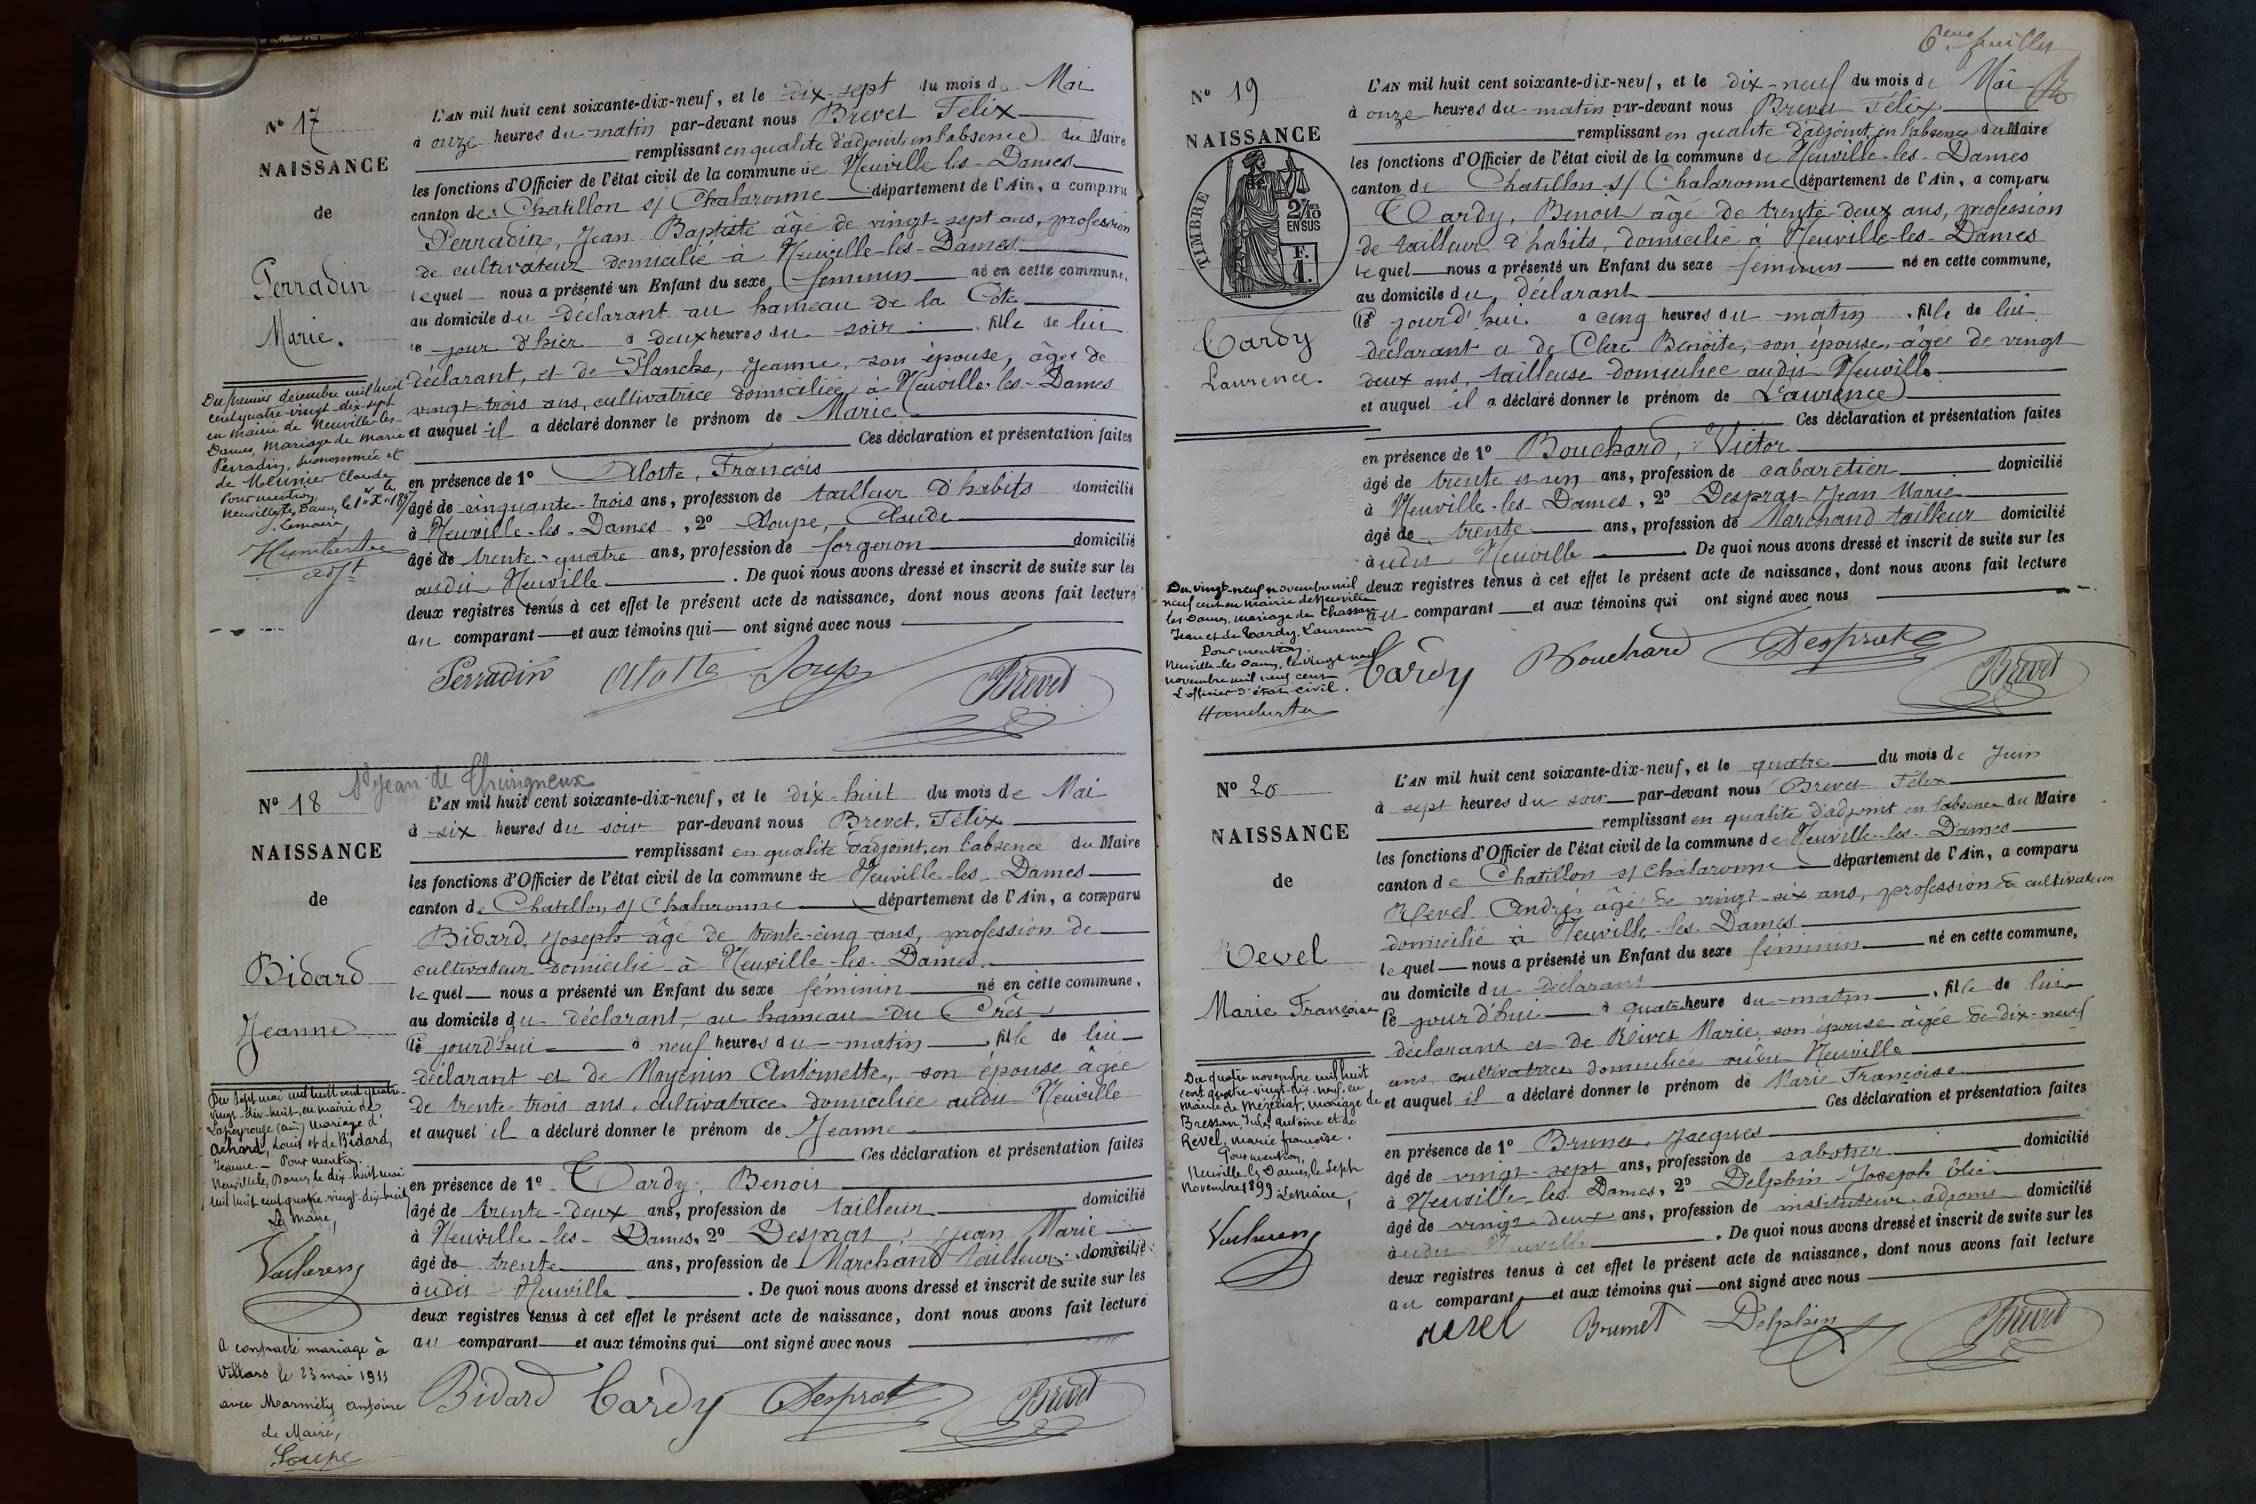 Nº 17
NAISSANCE
de
Perradin
Marie.
Du premier décembre mil huit
cent quatre-vingt-dix-sept
en mairie de Neuville-les-
Dames, mariage de Marie
Perradin, susnommée et
de Meunier Claude
Pour mention,
Neuville les Dames, le 1er Xbre 1897
Le maire,
Humbert
adjt
L'AN mil huit cent soixante-dix-neuf, et le dix-sept du mois de Mai
à onze heures du matin par-devant nous Brevet Félix
remplissant en qualité d'adjoint en l'absence du Maire
les fonctions d'Officier de l'état civil de la commune de Neuville-les-Dames
canton de Chatillon s/ Chalaronne département de l'Ain, a comparu
Perradin, Jean Baptiste âgé de vingt sept ans, profession
de cultivateur domicilié à Neuville-les-Dames
lequel nous a présenté un Enfant du sexe féminin né en cette commune,
au domicile du déclarant au hameau de la Côte
le jour d'hier à deux heures du soir, fille de lui
déclarant, et de Planche, Jeanne, son épouse, âgée de
vingt-trois ans, cultivatrice domiciliée, à Neuville-les-Dames
et auquel il a déclaré donner le prénom de Marie
Ces déclaration et présentation faites
en présence de 1º Alotte, François
âgé de cinquante-trois ans, profession de tailleur d'habits domicilié
à Neuville-les-Dames, 2º Soupe, Claude
âgé de trente-quatre ans, profession de forgeron domicilié
audit Neuville. De quoi nous avons dressé et inscrit de suite sur les
deux registres tenus à cet effet le présent acte de naissance, dont nous avons fait lecture
au comparant et aux témoins qui ont signé avec nous
Perradin Alotte Soupe Brevet
St Jean de Thurigneux
Nº 18
NAISSANCE
de
Bidard
Jeanne
Du sept mai mil huit cent quatre-
vingt-dix-huit, en mairie de
Lapeyrouse (ain) mariage d'
Achard, Louis et de Bidard,
Jeanne. - Pour mention.
Neuville les Dames le dix-huit mai
mil huit cent quatre-vingt-dix-huit
Le Maire,
A contracté mariage à
Villars le 23 mai 1911
avec Marmety antoine
Le Maire,
Soupe
L'AN mil huit cent soixante-dix-neuf, et le dix-huit du mois de Mai
à six heures du soir par-devant nous Brevet, Félix
remplissant en qualité d'adjoint, en l'absence du Maire
les fonctions d'Officier de l'état civil de la commune de Neuville-les-Dames
canton de Chatillon s/ Chalaronne département de l'Ain, a comparu
Bidard, Joseph âgé de trente-cinq ans, profession de
cultivateur domicilié à Neuville-les-Dames.
lequel nous a présenté un Enfant du sexe féminin né en cette commune,
au domicile du déclarant, au hameau du Crès
le jourd'hui à neuf heures du matin, fille de lui
déclarant et de Moyenin Antoinette, son épouse âgée
de trente trois ans, cultivatrice domiciliée audit Neuville
et auquel il a déclaré donner le prénom de Jeanne
Ces déclaration et présentation faites
en présence de 1º Tardy, Benoit
âgé de trente-deux ans, profession de tailleur domicilié
à Neuville-les-Dames, 2º Desprat, Jean Marie
âgé de trente ans, profession de Marchand tailleur domicilié
audit Neuville. De quoi nous avons dressé et inscrit de suite sur les
deux registres tenus à cet effet le présent acte de naissance, dont nous avons fait lecture
au comparant et aux témoins qui ont signé avec nous
Bidard Tardy Desprat Brevet
6eme feuillet
Nº 19
NAISSANCE
TIMBRE
2/10 EN SUS
F. 1.
Tardy
Laurence.
Du vingt-neuf novembre mil
neuf cent en mairie de Neuville
les Dames, mariage de Chassan
Jean et de Tardy Laurence
Pour mention.
Neuville-les Dames, le vingt neuf
novembre mil neuf cent
L'officier d'état civil.
Humbert
L'AN mil huit cent soixante-dix-neuf, et le dix-neuf du mois de Mai
à onze heures du matin par-devant nous Brevet Félix
remplissant en qualité d'adjoint, en l'absence du Maire
les fonctions d'Officier de l'état civil de la commune de Neuville-les-Dames
canton de Chatillon s/ Chalaronne département de l'Ain, a comparu
Tardy, Benoit âgé de trente-deux ans, profession
de tailleur d'habits, domicilié à Neuville-les-Dames
lequel nous a présenté un Enfant du sexe féminin né en cette commune,
au domicile du déclarant
le jourd'hui à cinq heures du matin, fille de lui
déclarant et de Clerc Benoite, son épouse, âgée de vingt
deux ans, tailleuse domiciliée audit Neuville
et auquel il a déclaré donner le prénom de Laurence
Ces déclaration et présentation faites
en présence de 1º Bouchard, Victor
âgé de trente et un ans, profession de cabaretier domicilié
à Neuville-les-Dames, 2º Desprat Jean Marie
âgé de trente ans, profession de Marchand tailleur domicilié
audit Neuville. De quoi nous avons dressé et inscrit de suite sur les
deux registres tenus à cet effet le présent acte de naissance, dont nous avons fait lecture
au comparant et aux témoins qui ont signé avec nous
Tardy Bouchard Desprat Brevet
Nº 20
NAISSANCE
de
Revel
Marie Françoise
Du quatre novembre mil huit
cent quatre-vingt-dix-neuf, en
mairie de Mézériat, mariage de
Bressan, Jules antoine et de
Revel, marie françoise.
Pour mention,
Neuville les Dames, le sept
Novembre 1899 Le Maire,
L'AN mil huit cent soixante-dix-neuf, et le quatre du mois de Juin
à sept heures du soir par-devant nous Brevet Félix
remplissant en qualité d'adjoint en l'absence du Maire
les fonctions d'Officier de l'état civil de la commune de Neuville-les-Dames
canton de Chatillon s/ Chalaronne département de l'Ain, a comparu
Revel André, âgé de vingt-six ans, profession de cultivateur
domicilié à Neuville-les-Dames
lequel nous a présenté un Enfant du sexe féminin né en cette commune,
au domicile du déclarant
le jourd'hui à quatre heure du matin, fille de lui
déclarant et de Rivet Marie, son épouse âgée de dix-neuf
ans cultivatrice domiciliée audit Neuville
et auquel il a déclaré donner le prénom de Marie Françoise
Ces déclaration et présentation faites
en présence de 1º Brunet, Jacques
âgé de vingt-sept ans, profession de sabotier domicilié
à Neuville les Dames, 2º Delphin Joseph Elie
âgé de vingt-deux ans, profession de instituteur adjoint domicilié
audit Neuville. De quoi nous avons dressé et inscrit de suite sur les
deux registres tenus à cet effet le présent acte de naissance, dont nous avons fait lecture
au comparant et aux témoins qui ont signé avec nous
revel Brunet Delphin Brevet